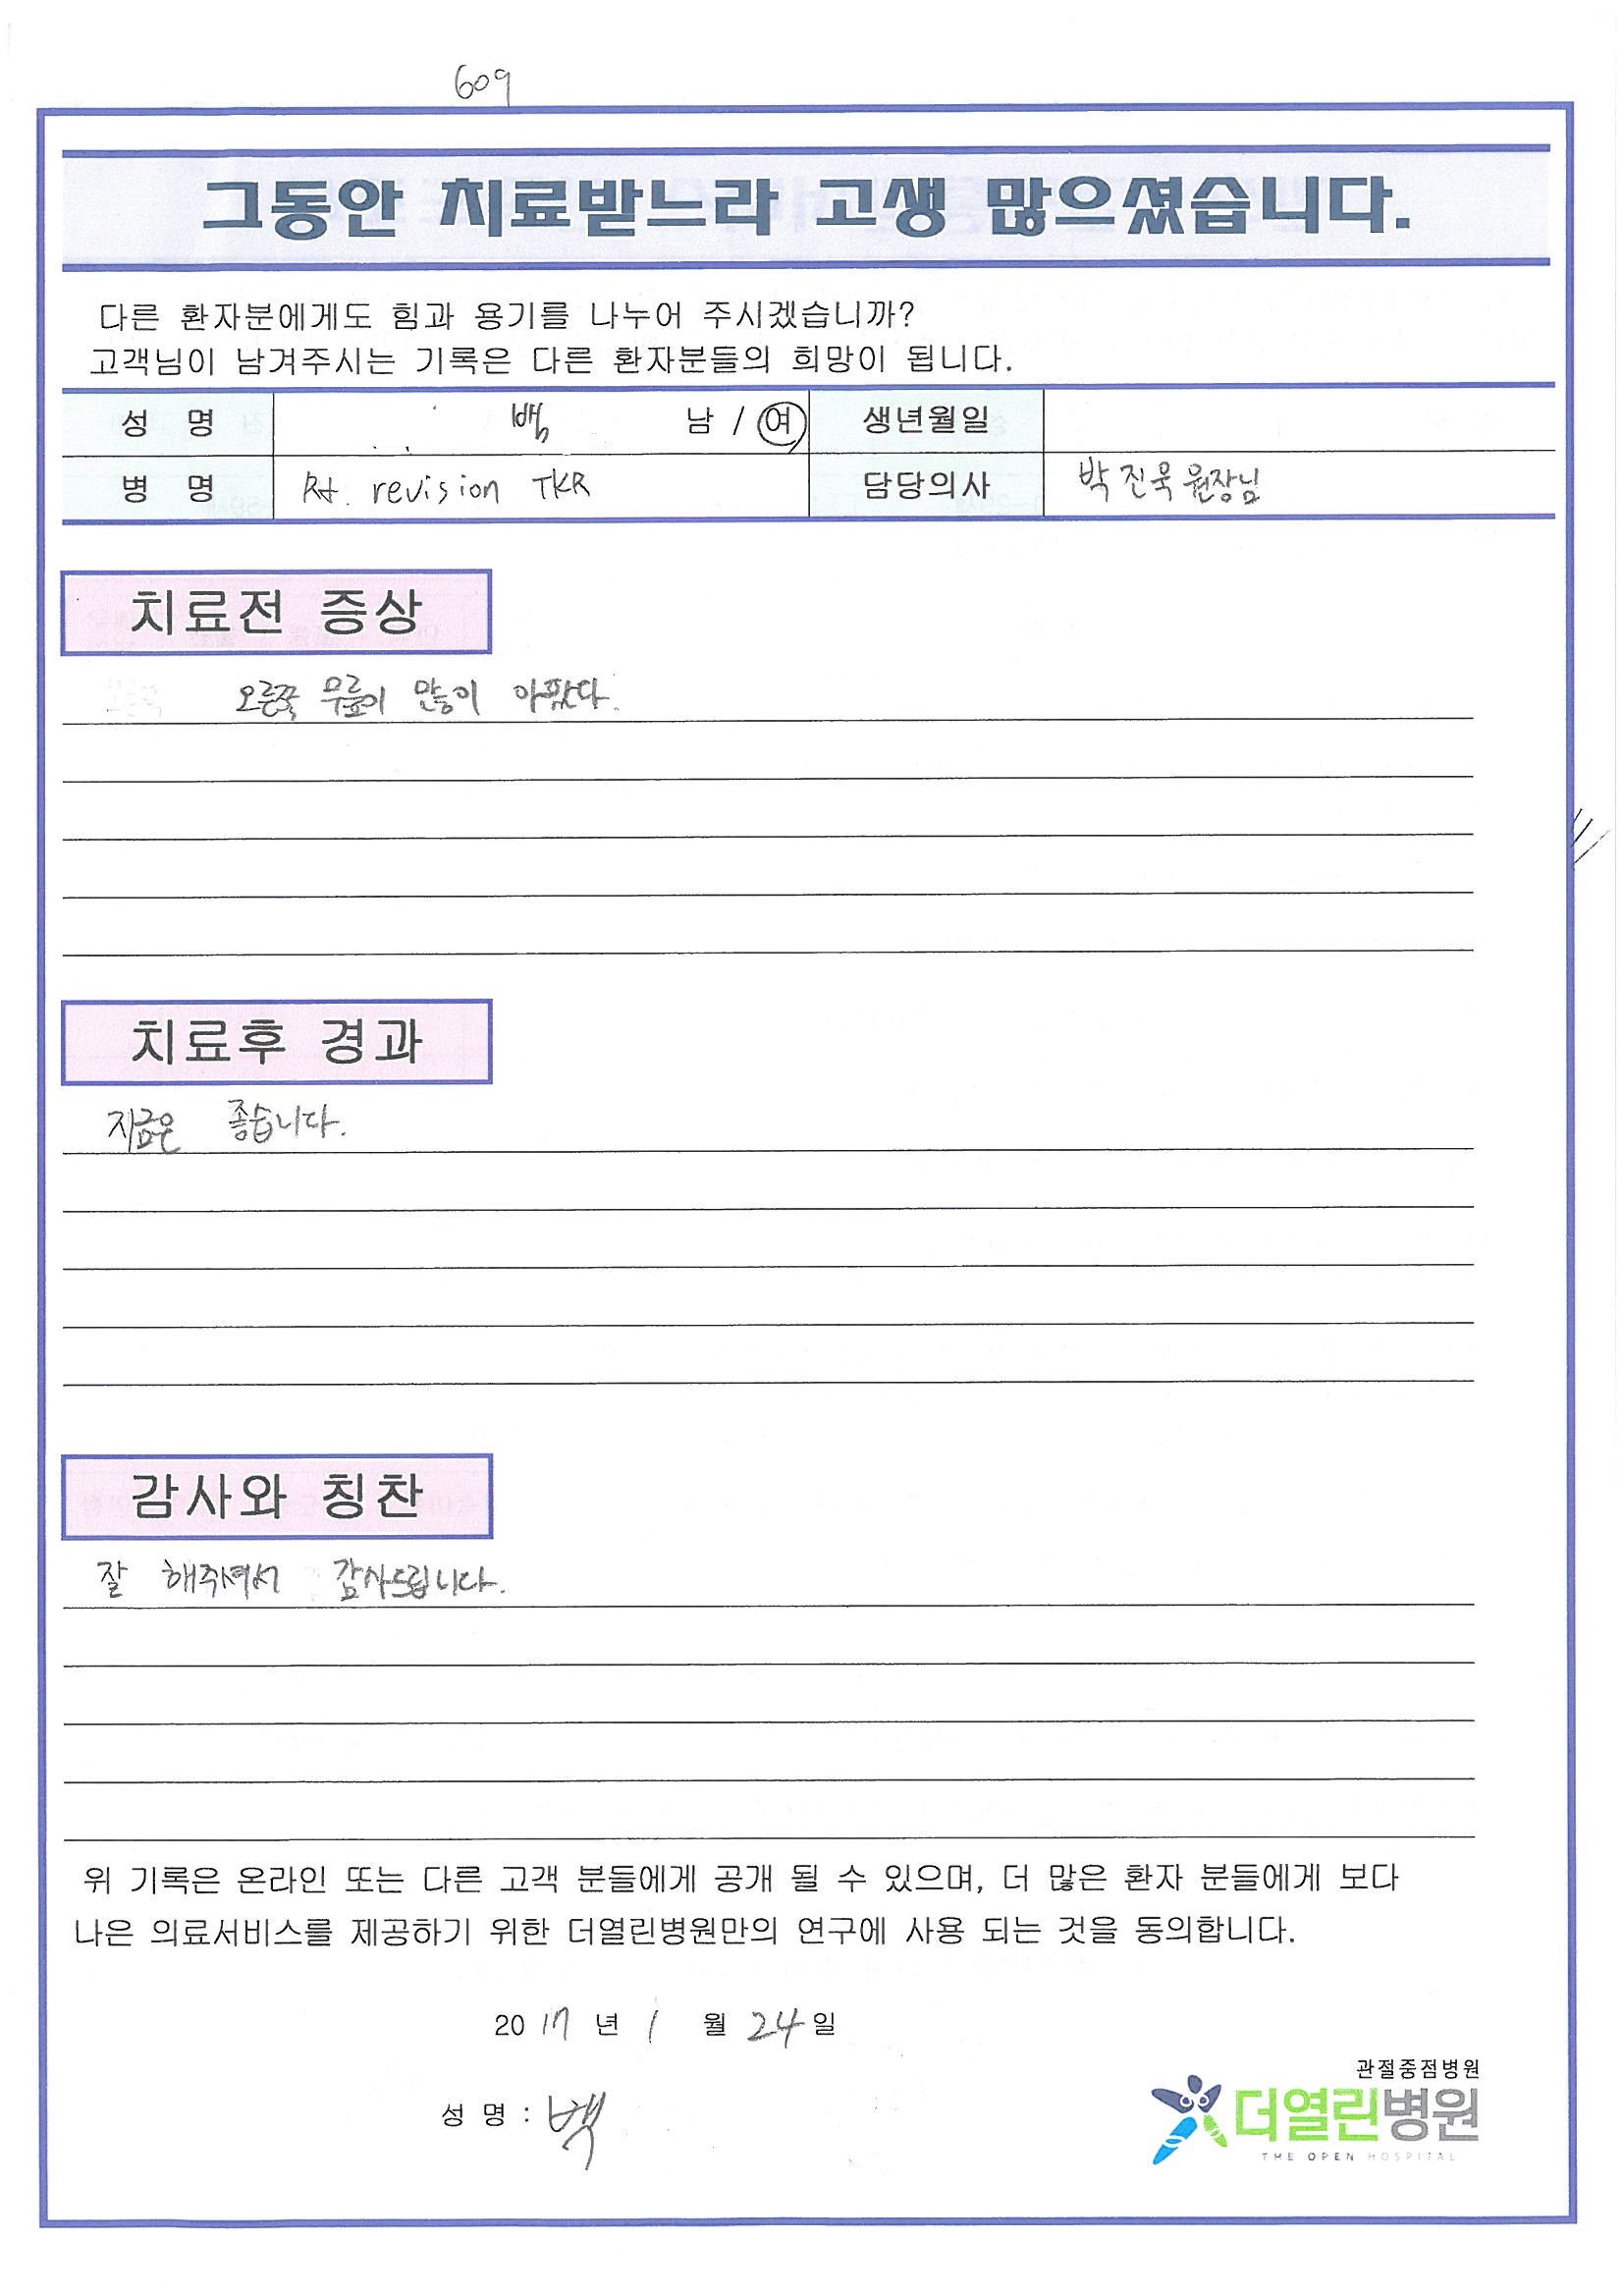 609
그동안 치료받느라 고생 많으셨습니다.
다른 환자분에게도 힘과 용기를 나누어 주시겠습니까?
고객님이 남겨주시는 기록은 다른 환자분들의 희망이 됩니다.
성 명 백 남 / 여 생년월일
병 명 Rt. revision TKR 담당의사 박진욱 원장님
치료전 증상
오른쪽 무릎이 많이 아팠다.
치료후 경과
지금은 좋습니다.
감사와 칭찬
잘 해주셔서 감사드립니다.
위 기록은 온라인 또는 다른 고객 분들에게 공개 될 수 있으며, 더 많은 환자 분들에게 보다
나은 의료서비스를 제공하기 위한 더열린병원만의 연구에 사용 되는 것을 동의합니다.
2017 년 1 월 24 일
성 명 : 백
관절중점병원
더열린병원
THE OPEN HOSPITAL